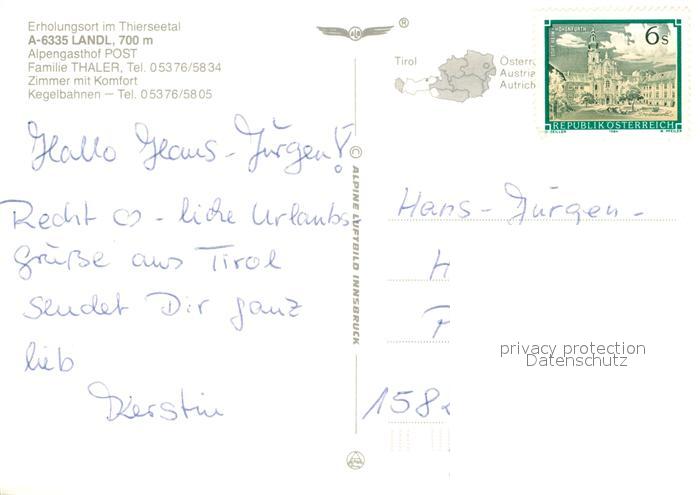 Erholungsort im Thierseetal
A-6335 LANDL, 700 m
Alpengasthof POST
Familie THALER, Tel. 05376/5834
Zimmer mit Komfort
Kegelbahnen – Tel. 05376/5805
®
Tirol
Österr
Austria
Autrich
6s
STIFT REIN-HOHENFURTH
REPUBLIK ÖSTERREICH
1984
Hallo Hans-Jürgen!
Recht ♡-liche Urlaubs
grüße aus Tirol
sendet Dir ganz
lieb
Kerstin
© ALPINE LUFTBILD INNSBRUCK
Hans-Jürgen-
H
158
privacy protection
Datenschutz